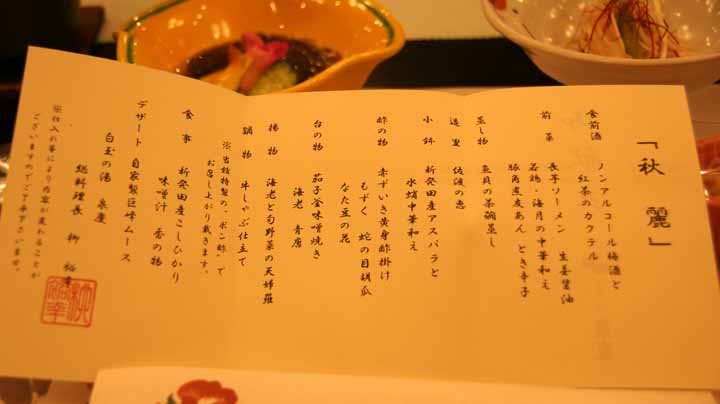 「秋麗」
食前酒 ノンアルコール梅酒と
紅茶のカクテル
前菜 長芋ソーメン 生姜醤油
若鶏・海月の中華和え
豚角煮炙あん とき辛子
蒸し物 魚貝の茶碗蒸し
造里 佐渡の恵
小鉢 新発田産アスパラと
水蛸中華和え
酢の物 赤ずいき黄身酢掛け
もずく 蛇の目胡瓜
なた豆の花
台の物 茄子釜味噌焼き
海老 青唐
揚物 海老と旬野菜の天婦羅
鍋物 牛しゃぶ仕立て
※当館特製の、"ポン酢"で
お召し上がり戴きます。
食事 新発田産こしひかり
味噌汁 香の物
デザート 自家製巨峰ムース
白玉の湯 泉慶
総料理長 柳 裕幸
※仕入れ等により内容が変わることが
ございますのでご了承下さいませ。